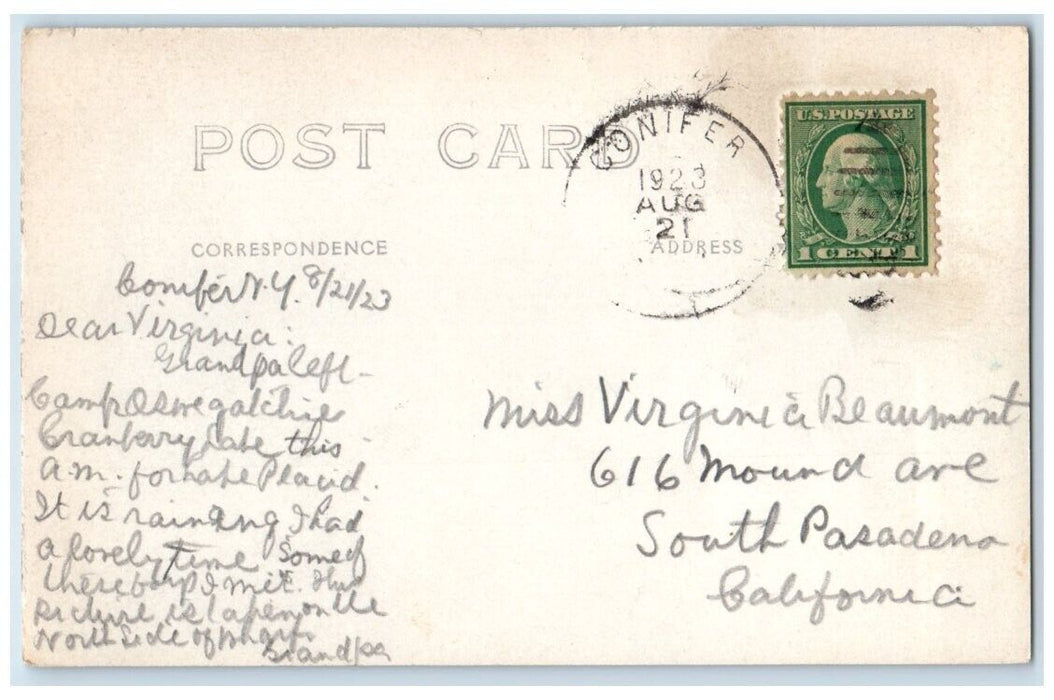 POST CARD
CONIFER
1923
AUG
21
U.S. POSTAGE
1 CENT 1
CORRESPONDENCE
ADDRESS
Conifer N.Y. 8/21/23
Dear Virginia:
Grandpa left
Camp
Cranberry Lake this
a.m. for Lake Placid.
It is raining I had
a lovely time Some of
these boys I met. This
picture is taken on the
North side of
Grandpa
Miss Virginia Beaumont
616 Mound ave
South Pasadena
California